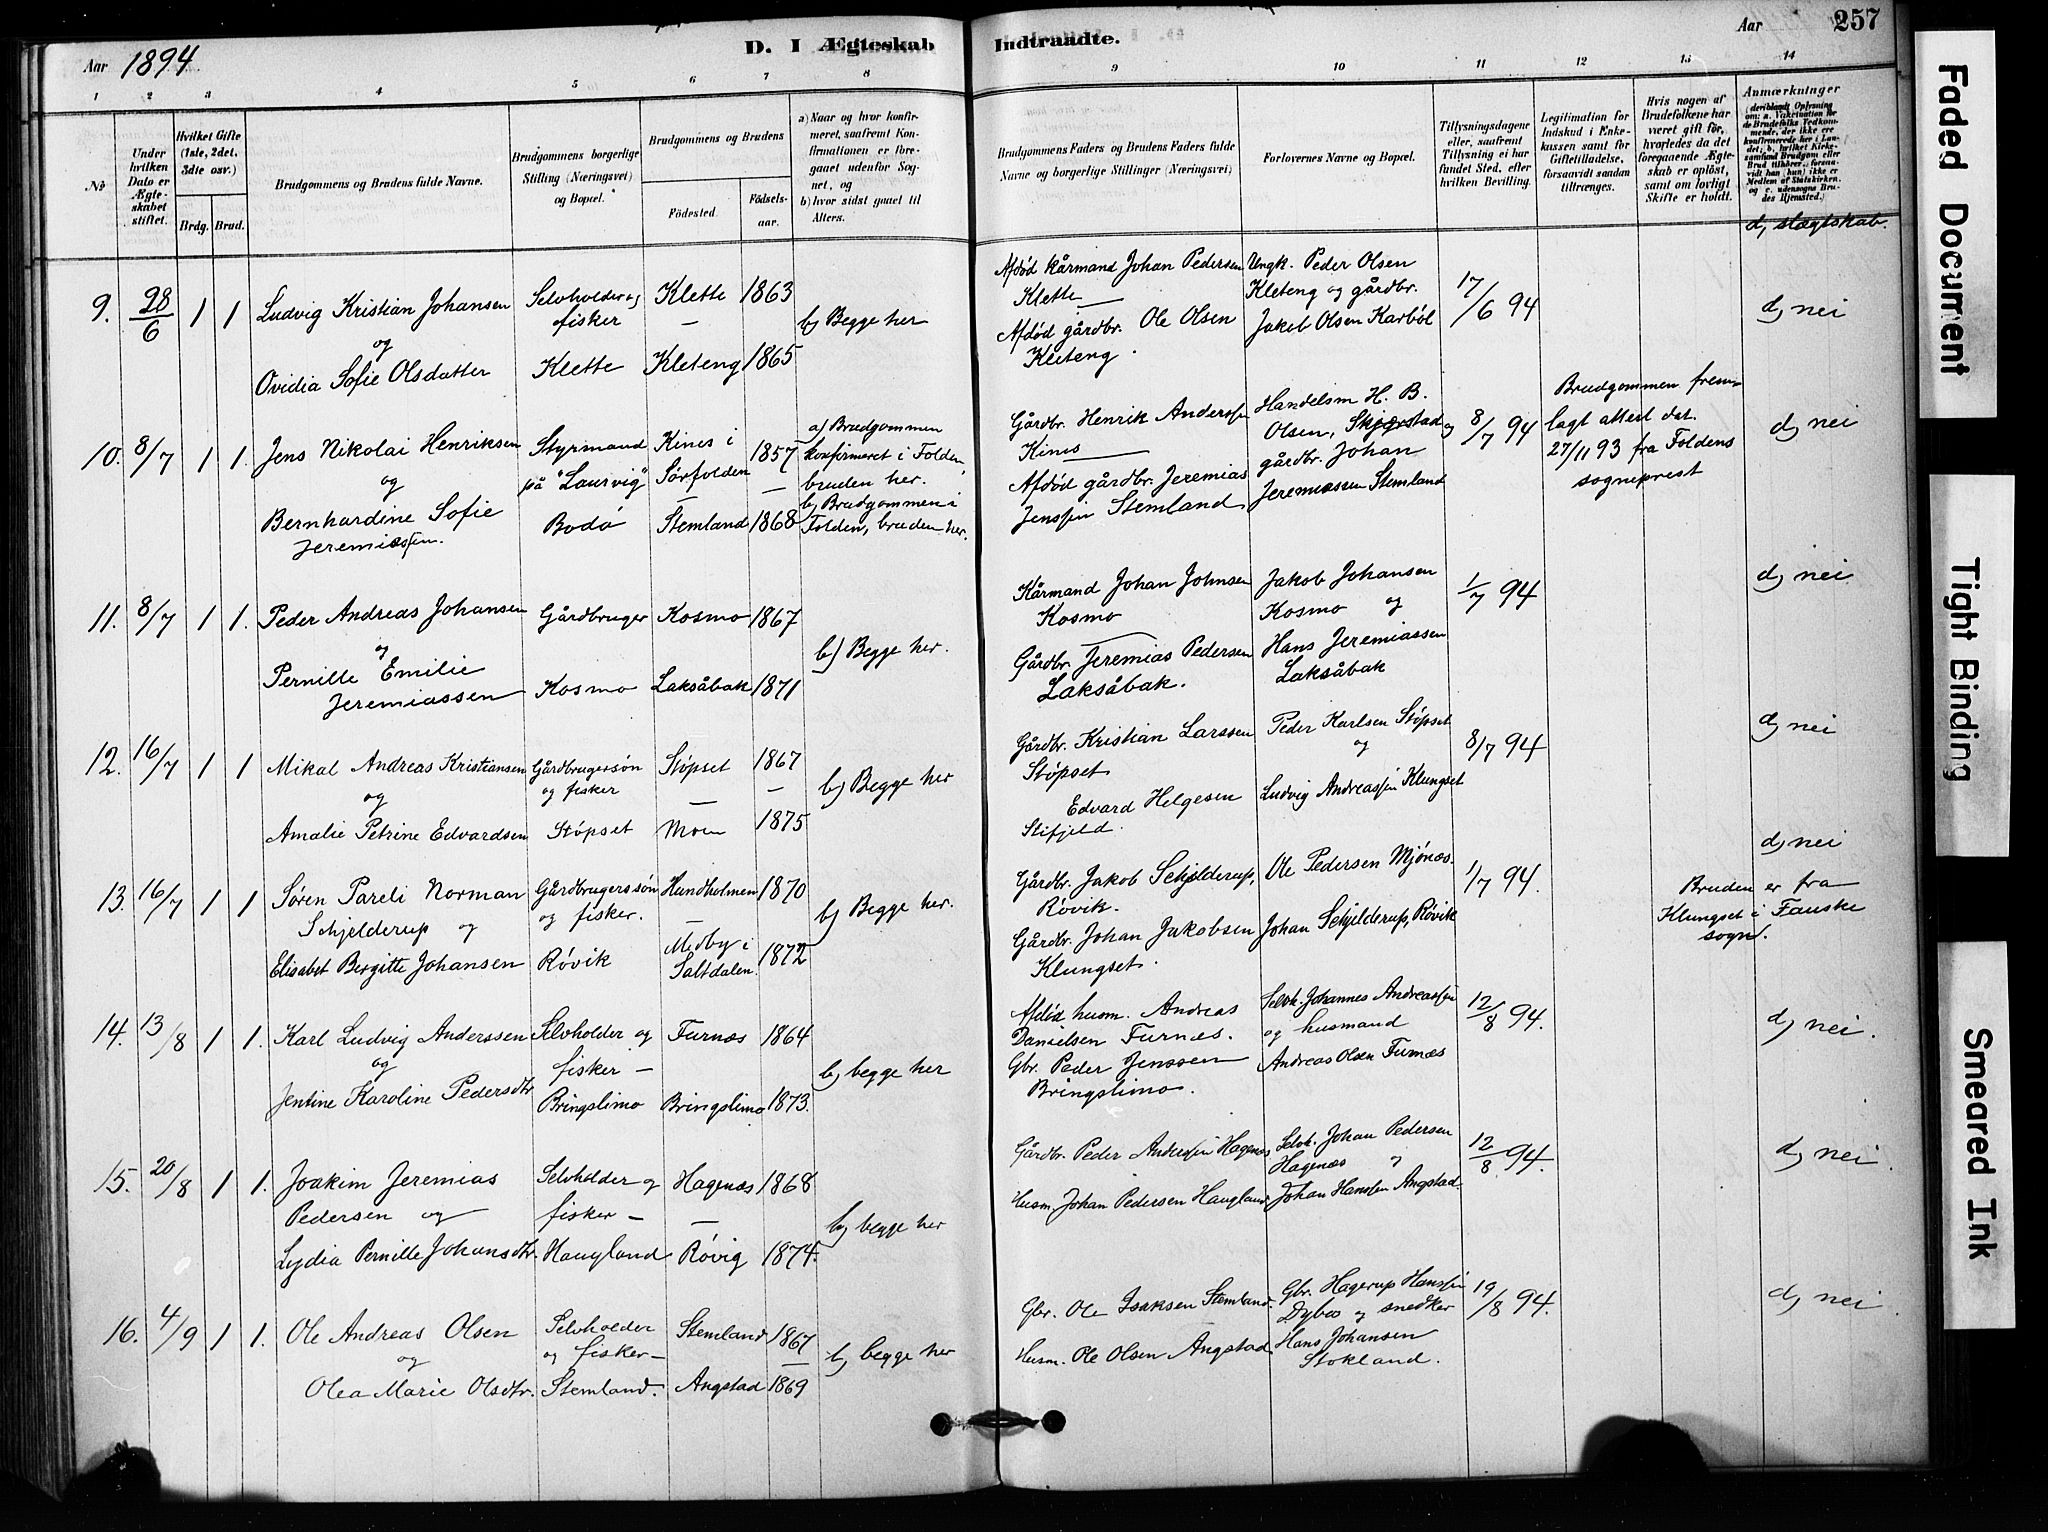 Aar 1894
D. I Ægteskab Indtraadte.
Aar
257
1 2 3 4 5 6 7 8 9 10 11 12 13 14
No
Under hvilken Dato er Ægteskabet stiftet.
Hvilket Gifte (1ste, 2det, 3dte osv.)
Brdg. Brud.
Brudgommens og Brudens fulde Navne.
Brudgommens borgerlige Stilling (Næringsvei) og Bopæl.
Brudgommens og Brudens
Födested.
Födselsaar.
a) Naar og hvor konfirmeret, saafremt Konfirmationen er foregaaet udenfor Sognet, og
b) hvor sidst gaaet til Alters.
Brudgommens Faders og Brudens Faders fulde Navne og borgerlige Stillinger (Næringsvei)
Forlovernes Navne og Bopæl.
Tillysningsdagene eller, saafremt Tillysning ei har fundet Sted, efter hvilken Bevilling.
Legitimation for Indskud i Enkekassen samt for Giftetilladelse, forsaavidt saadan tiltrænges.
Hvis nogen af Brudefolkene har været gift för, hvorledes da det foregaaende Ægteskab er oplöst, samt om lovligt Skifte er holdt.
Anmærkninger
(deriblandt Oplysning om: a. Vakcination for de Brudefolks Vedkommende, der ikke ere konfirmerede her i Landet; b. hvilket Kirkesamfund Brudgom eller Brud tilhører, forsaavidt han (hun) ikke er Medlem af Statskirken, og c. udensogns Brudes Hjemsted.)
d, slægtskab.
9. 28/6 1 1 Ludvig Kristian Johansen
og
Ovidia Sofie Olsdatter
Selvholder og
fisker
Klette
Klette 1863
—
Kleteng 1865
b, Begge her
Afdød Kårmand Johan Pedersen
Klette —
Afdød gårdbr. Ole Olsen
Kleteng.
Ungk. Peder Olsen
Kleteng og gårdbr.
Jakob Olsen Karbøl
17/6 94
d, nei
10. 8/7 1 1. Jens Nikolai Henriksen
og
Bernhardine Sofie
Jeremiassen.
Styrmand
på "Laurvig"
Bodø
Kines i
Sørfolden 1857
—
Stemland 1868
a) Brudgommen
konfirmeret i Folden,
bruden her.
b, Brudgommen i
Folden, bruden her.
Gårdbr. Henrik Anderssen
Kines —
Afdød gårdbr. Jeremias
Jenssen Stemland
Handelsm H. B.
Olsen, Skjerstad og
gårdbr. Johan
Jeremiassen Stemland
8/7 94
Brudgommen frem-
lagt attest dat.
27/11 93 fra Foldens
sogneprest
d, nei
11. 8/7 1 1. Peder Andreas Johansen
og
Pernille Emilie
Jeremiassen
Gårdbruger
Kosmo
Kosmo 1867
Laksåbak 1871
b) Begge her.
Kårmand Johan Johnsen
Kosmo
Gårdbr. Jeremias Pedersen
Laksåbak.
Jakob Johansen
Kosmo og
Hans Jeremiassen
Laksåbak
1/7 94
d, nei
12. 16/7 1 1 Mikal Andreas Kristiansen
og
Amalie Petrine Edvardsen
Gårdbrugersøn
og fisker
Støpset
Støpset 1867
—
Moen 1875
b, Begge her
Gårdbr. Kristian Larssen
Støpset
Edvard Helgesen
Stifjeld.
Peder Karlsen Støpset
og
Ludvig Andreassen Klungset
8/7 94
d, nei
13. 16/7 1 1 Søren Pareli Norman
Schjelderup og
Elisabet Bergitte Johansen
Gårdbrugerssøn
og fisker.
Røvik
Hundholmen 1870
—
Medby i
Saltdalen. 1872
b, Begge her.
Gårdbr. Jakob Schjelderup,
Røvik.
Gårdbr. Johan Jakobsen
Klungset.
Ole Pedersen Mjønes.
Johan Schjelderup, Røvik
1/7 94.
Bruden er fra
Klungset i Fauske
sogn.
d, nei
14. 13/8 1 1. Karl Ludvig Anderssen
og
Jentine Karoline Pedersdtr
Selvholder og
fisker —
Bringslimo
Furnæs 1864
Bringslimo 1873.
b, begge her
Afdød husm. Andreas
Danielsen Furnæs.
Gbr. Peder Jenssen
Bringslimo.
Selvh. Johannes Andreassen
og husmand
Andreas Olsen Furnæs
12/8 94.
d, nei.
15. 20/8 1 1. Joakim Jeremias
Pedersen og
Lydia Pernille Johansdtr.
Selvholder og
fisker —
Haugland
Hagenæs 1868
—
Røvig 1874.
b, begge her
Gårdbr. Peder Anderssen Hagenæs.
Husm. Johan Pedersen Haugland
Selvh. Johan Pedersen
Hagenæs og
Johan Hanssen Angstad.
12/8 94.
d, nei.
16. 4/9 1 1. Ole Andreas Olsen
og
Olea Marie Olsdtr.
Selvholder
og fisker —
Stemland.
Stemland 1867
—
Angstad 1869
b, begge her
Gbr. Ole Isaksen Stemland.
Husm. Ole Olsen Angstad.
Gbr. Hagerup Hanssen
Dybvo og snedker
Hans Johansen
Stokland.
19/8 94.
d, nei
Faded Document
Tight Binding
Smeared Ink